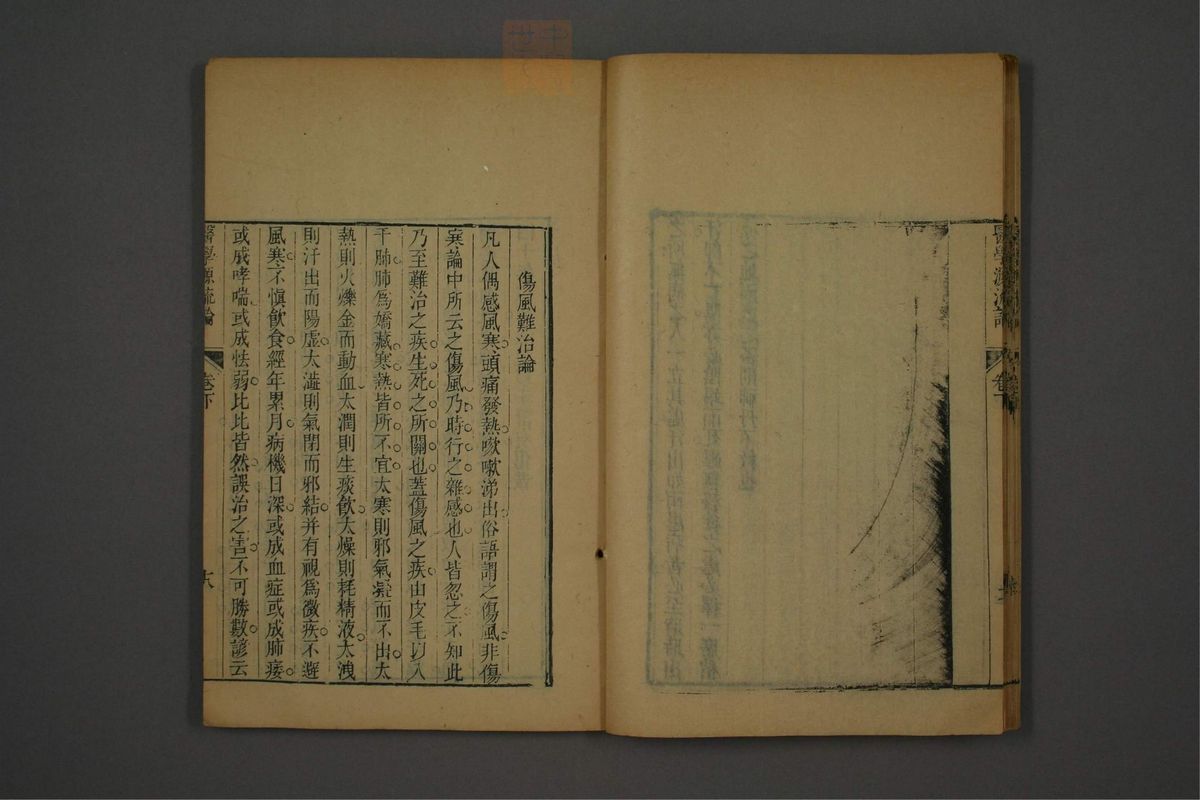 醫學源流論
卷下
傷風難治論
凡人偶感風寒頭痛發熱咳嗽涕出俗語謂之傷風非傷
寒論中所云之傷風乃時行之雜感也人皆忽之不知此
乃至難治之疾生死之所關也蓋傷風之疾由皮毛以入
于肺肺爲嬌藏寒熱皆所不宜太寒則邪氣凝而不出太
熱則火爍金而動血太潤則生痰飲太燥則耗精液太洩
則汗出而陽虛太澁則氣閉而邪結并有視爲微疾不避
風寒不愼飲食經年累月病機日深或成血症或成肺痿
或成哮喘或成怯弱比比皆然誤治之害不可勝數諺云
醫學源流論
卷下